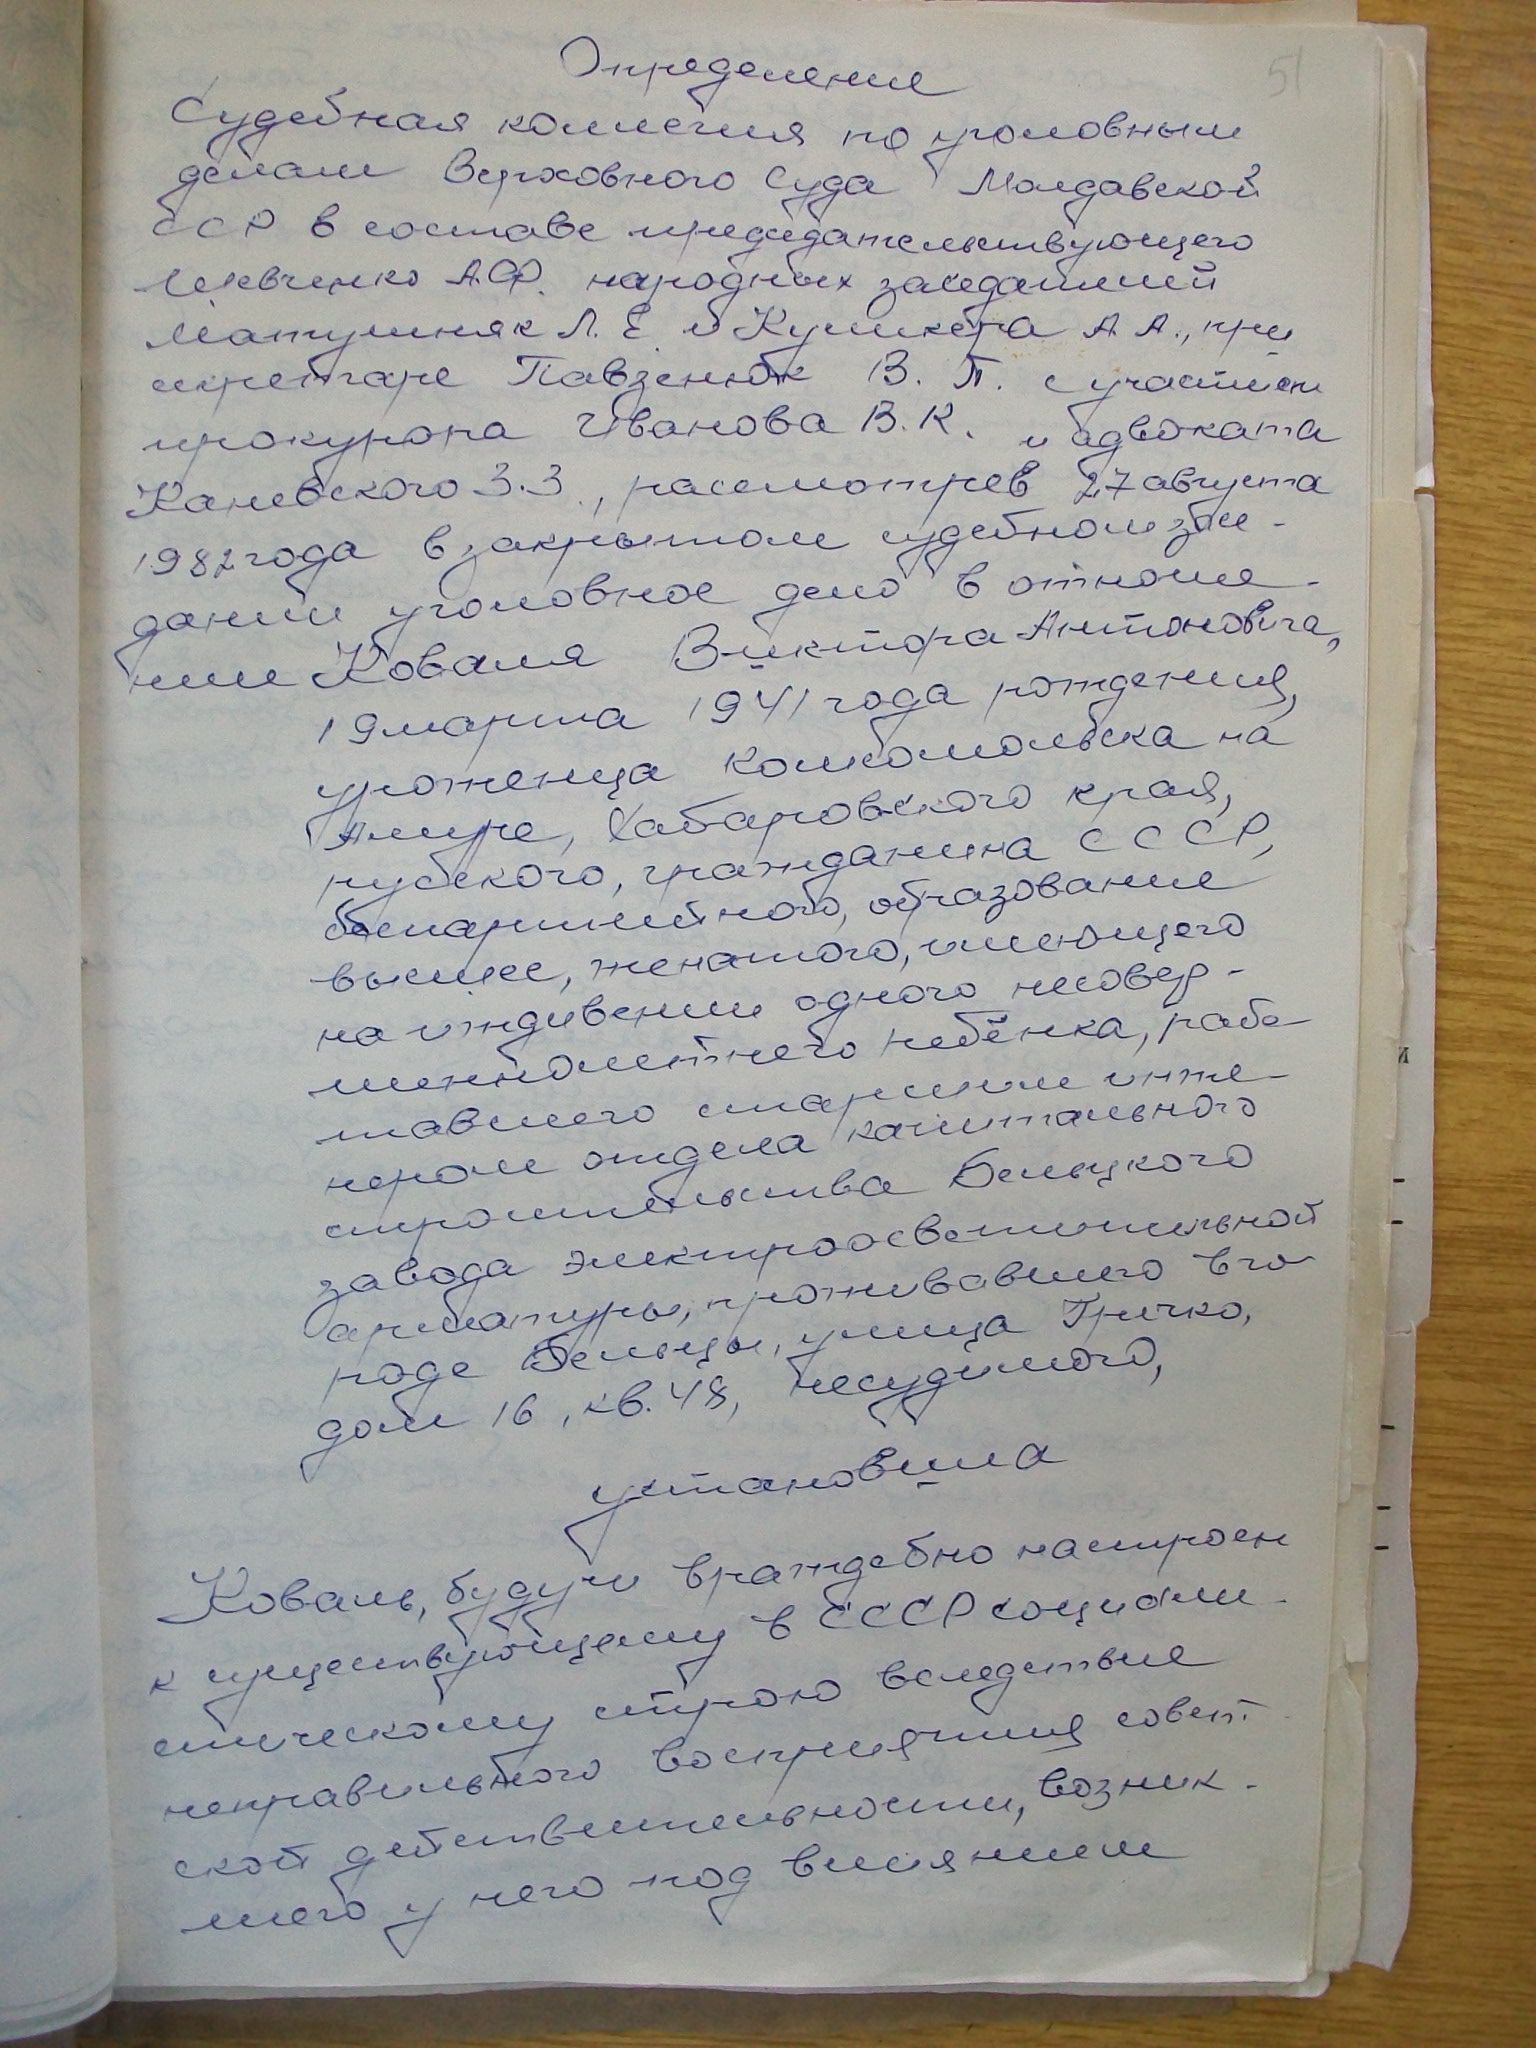 51
Определение
Судебная коллегия по уголовным
делам Верховного Суда Молдавской
ССР в составе председательствующего
Шевченко А.Ф. народных заседателей
Матушняк Л. Е. и Кушкера А. А., при
секретаре Павзенюк В. П. с участием
прокурора Иванова В. К. и адвоката
Каневского З.З., рассмотрев 27 августа
1982 года в закрытом судебном засе-
дании уголовное дело в отноше-
нии Коваля Виктора Антоновича,
19 марта 1941 года рождения,
уроженца Комсомольска на
Амуре, Хабаровского края,
русского, гражданина СССР,
беспартийного, образование
высшее, женатого, имеющего
на иждивении одного несовер-
шеннолетнего ребёнка, рабо-
тавшего старшим инже-
нером отдела капитального
строительства Бельцкого
завода электроосветительной
арматуры, проживавшего в го-
роде Бельцы, улица Гречко,
дом 16, кв. 48, несудимого,
установила
Коваль, будучи враждебно настроен
к существующему в СССР социали-
стическому строю вследствие
неправильного восприятия совет-
ской действительности, возник-
шего у него под влиянием